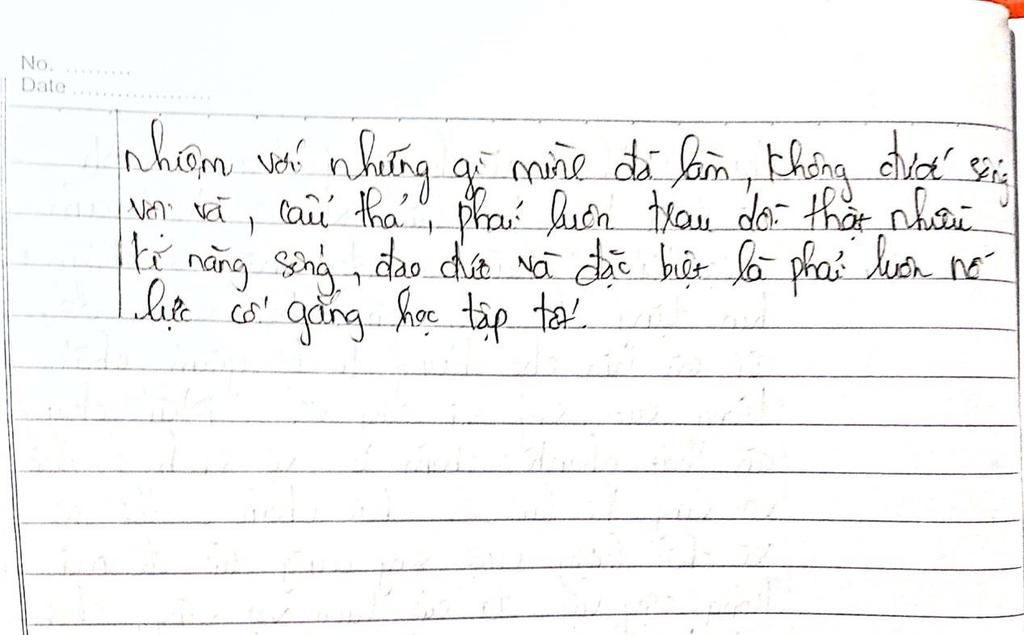 No. .........
Date ...................
nhiệm với những gì mình đã làm, không được sống
vội vã, cẩu thả, phải luôn trau dồi thật nhiều
kĩ năng sống, đạo đức và đặc biệt là phải luôn nỗ
lực cố gắng học tập tốt.